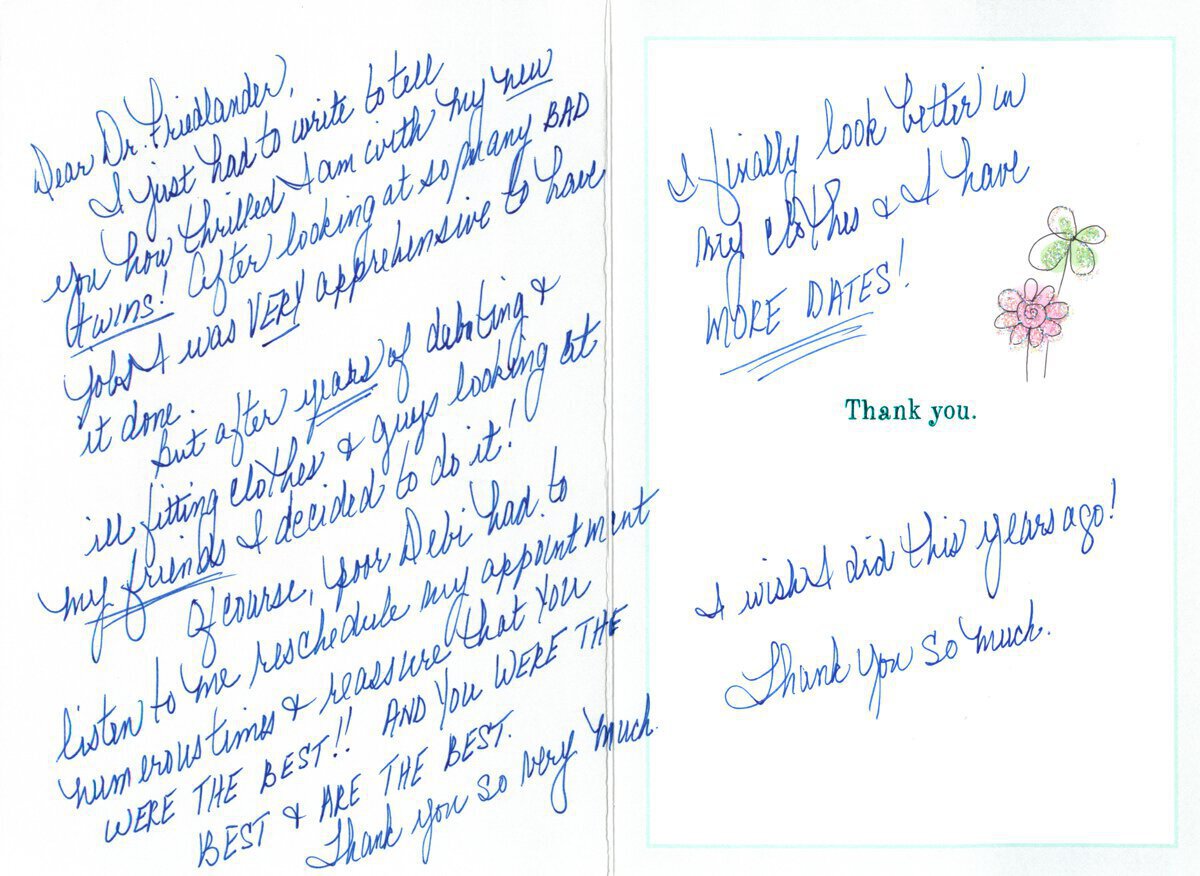 Dear Dr. Friedlander,
I just had to write to tell
you how thrilled I am with my new
twins! After looking at so many BAD
jobs I was VERY apprehensive to have
it done.
But after years of debating &
ill fitting clothes & guys looking at
my friends I decided to do it!
Of course, poor Debi had to
listen to me reschedule my appointment
numerous times & reassure that you
WERE THE BEST!! AND YOU WERE THE
BEST & ARE THE BEST.
Thank you so very much.
I finally look better in
my clothes & I have
MORE DATES!
Thank you.
I wish I did this years ago!
Thank you so much.